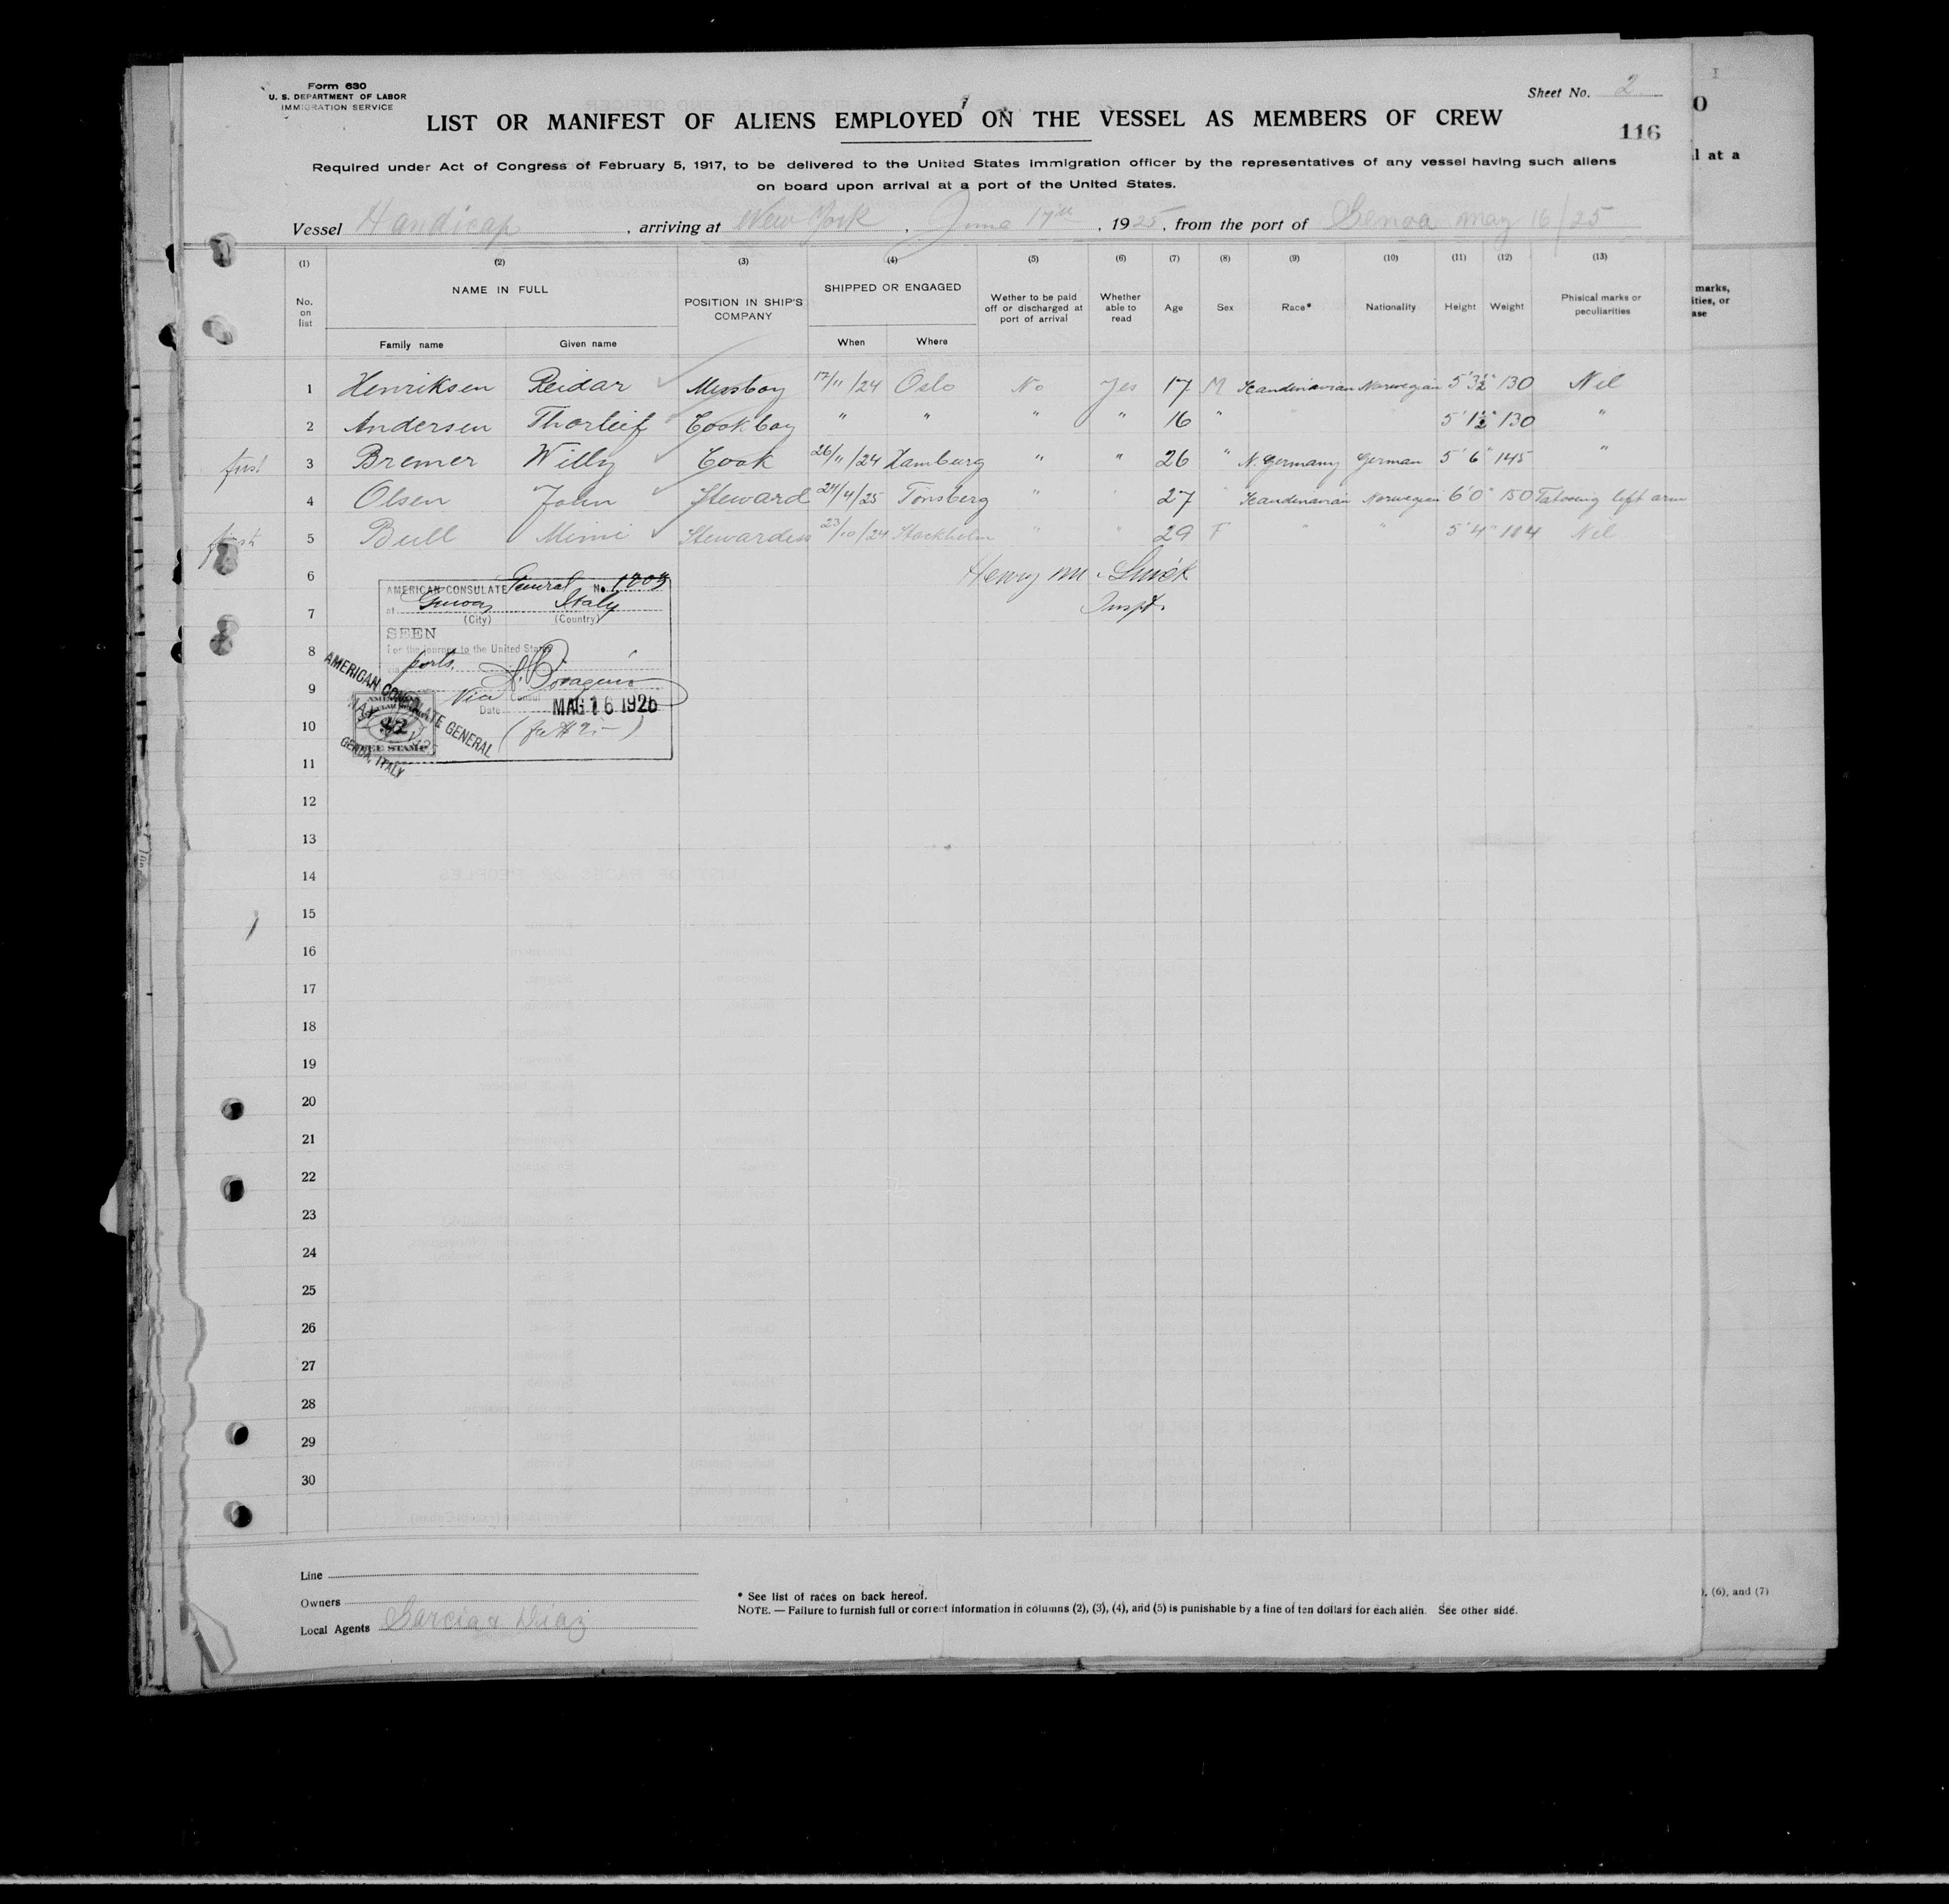 Form 630
U. S. DEPARTMENT OF LABOR
IMMIGRATION SERVICE
Sheet No. 2
LIST OR MANIFEST OF ALIENS EMPLOYED ON THE VESSEL AS MEMBERS OF CREW
116
Required under Act of Congress of February 5, 1917, to be delivered to the United States immigration officer by the representatives of any vessel having such aliens
on board upon arrival at a port of the United States.
Vessel Handicap, arriving at New York, June 17th, 1925, from the port of Genoa May 16/25
(1) (2) (3) (4) (5) (6) (7) (8) (9) (10) (11) (12) (13)
No. on list NAME IN FULL POSITION IN SHIP'S COMPANY SHIPPED OR ENGAGED Wether to be paid off or discharged at port of arrival Whether able to read Age Sex Race* Nationality Height Weight Phisical marks or peculiarities
Family name Given name When Where
1 Henriksen Reidar Messboy 17/11/24 Oslo No Yes 17 M Scandinavian Norwegian 5'3½" 130 Nil
2 Andersen Thorleif Cookboy " " " " 16 " 5'1½" 130 "
first 3 Bremer Willy Cook 26/11/24 Hamburg " " 26 " N. Germany German 5'6" 145 "
4 Olsen John Steward 24/4/25 Tönsberg " " 27 " Scandinavian Norwegian 6'0" 150 Tatooing left arm
first 5 Bull Mimi Stewardess 23/10/24 Stockholm " " 29 F " " 5'4" 184 Nil
6
Henry M.
Inspt.
7
8
9
10
11
12
13
14
15
16
17
18
19
20
21
22
23
24
25
26
27
28
29
30
AMERICAN CONSULATE General No.
at Genoa Italy
(City) (Country)
SEEN
For the journey to the United States
via ports.
Vice Consul
Date MAG 16 1925
AMERICAN CONSULATE GENERAL
GENOA, ITALY
FEE STAMP
Line
Owners
Local Agents Garcia & Diaz
* See list of races on back hereof.
NOTE. — Failure to furnish full or correct information in columns (2), (3), (4), and (5) is punishable by a fine of ten dollars for each alien. See other side.
l at a
marks,
ities, or
ase
), (6), and (7)